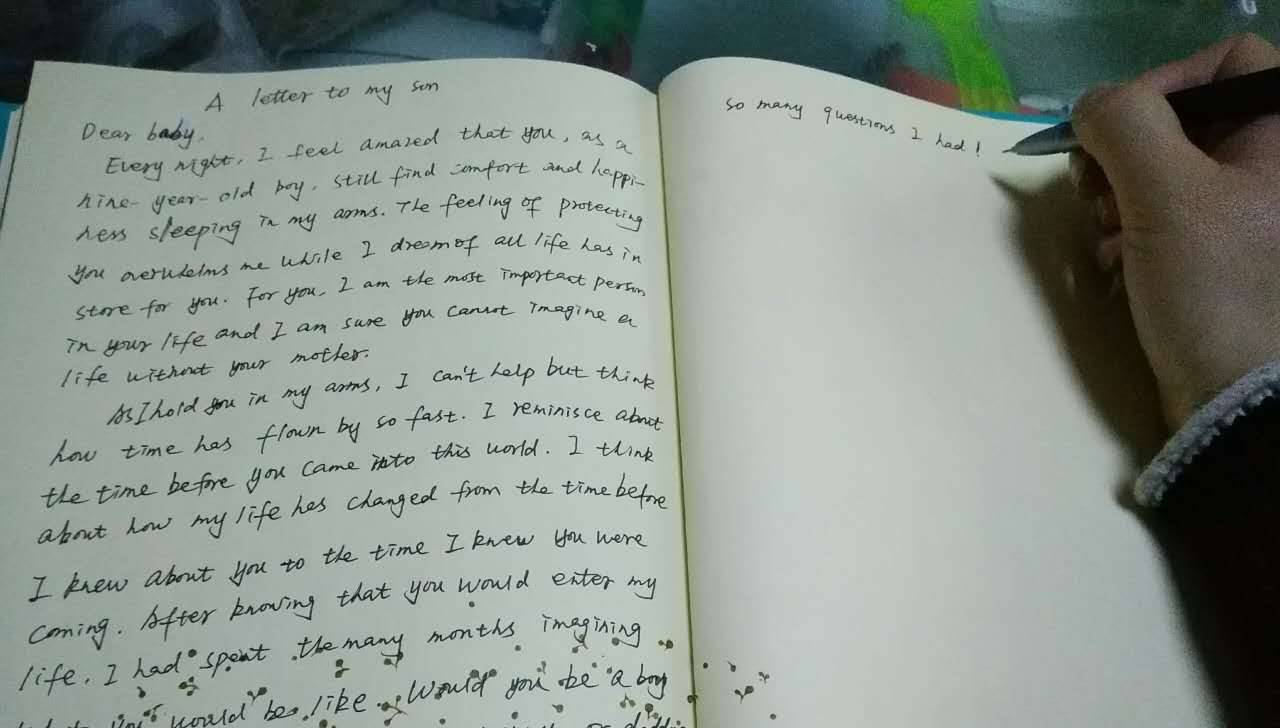 A letter to my son
Dear baby,
Every night, I feel amazed that you, as a
nine-year-old boy, still find comfort and happi-
ness sleeping in my arms. The feeling of protecting
you overwhelms me while I dream of all life has in
store for you. For you, I am the most important person
in your life and I am sure you cannot imagine a
life without your mother.
As I hold you in my arms, I can't help but think
how time has flown by so fast. I reminisce about
the time before you came into this world. I think
about how my life has changed from the time before
I knew about you to the time I knew you were
coming. After knowing that you would enter my
life, I had spent the many months imagining
you would be like. Would you be a boy
or
so many questions I had!